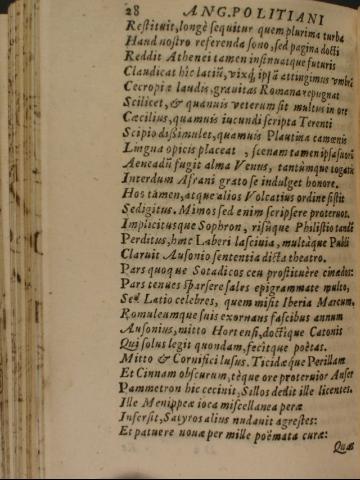 28 ANG. POLITIANI
Restituit, longè sequitur quem plurima turba
Haud nostro referenda sono, sed pagina docti
Reddit Athenei tamen insinuatque futuris
Claudicat hîc latiũ, vixq́; ipsã attingimus vmbrã
Cecropiæ laudis, grauitas Romana repugnat
Scilicet, & quanuis veterum sit multus in ore
Cæcilius, quamuis iucundi scripta Terenti
Scipio dissimulet, quamuis Plautina camœnis
Lingua opicis placeat, scenam tamen ipsa
Aeneadũ fugit alma Venus, tantúmque togatis
Interdum Afrani grato se indulget honore.
Hos tamen, atque alios Volcatius ordine sistit
Sedigitus. Mimos sed enim scripsere proteruos.
Implicitusque Sophron, risúque Philistio tandẽ
Perditus, hinc Laberi lasciuia, multáque Publi
Claruit Ausonio sententia dicta theatro.
Pars quoque Sotadicos ceu prostituêre cinædos:
Pars tenues sparsere sales epigrammate multo,
Sed Latio celebres, quem misit Iberia Marcum,
Romuleumque suis exornans fascibus annum
Ausonius, mitto Hortensi, doctique Catonis
Qui solus legit quondam, fecitque poëtas.
Mitto & Cornifici lusus. Ticidæque Perillam
Et Cinnam obscurum, téque ore proteruior Anser
Pammetron hic cecinit, Sillos dedit ille licentes.
Ille Menippeæ ioca miscellanea peræ
Inseruit, Satyros alius nudauit agrestes:
Et patuere nouæ per mille poëmata curæ:
Quas